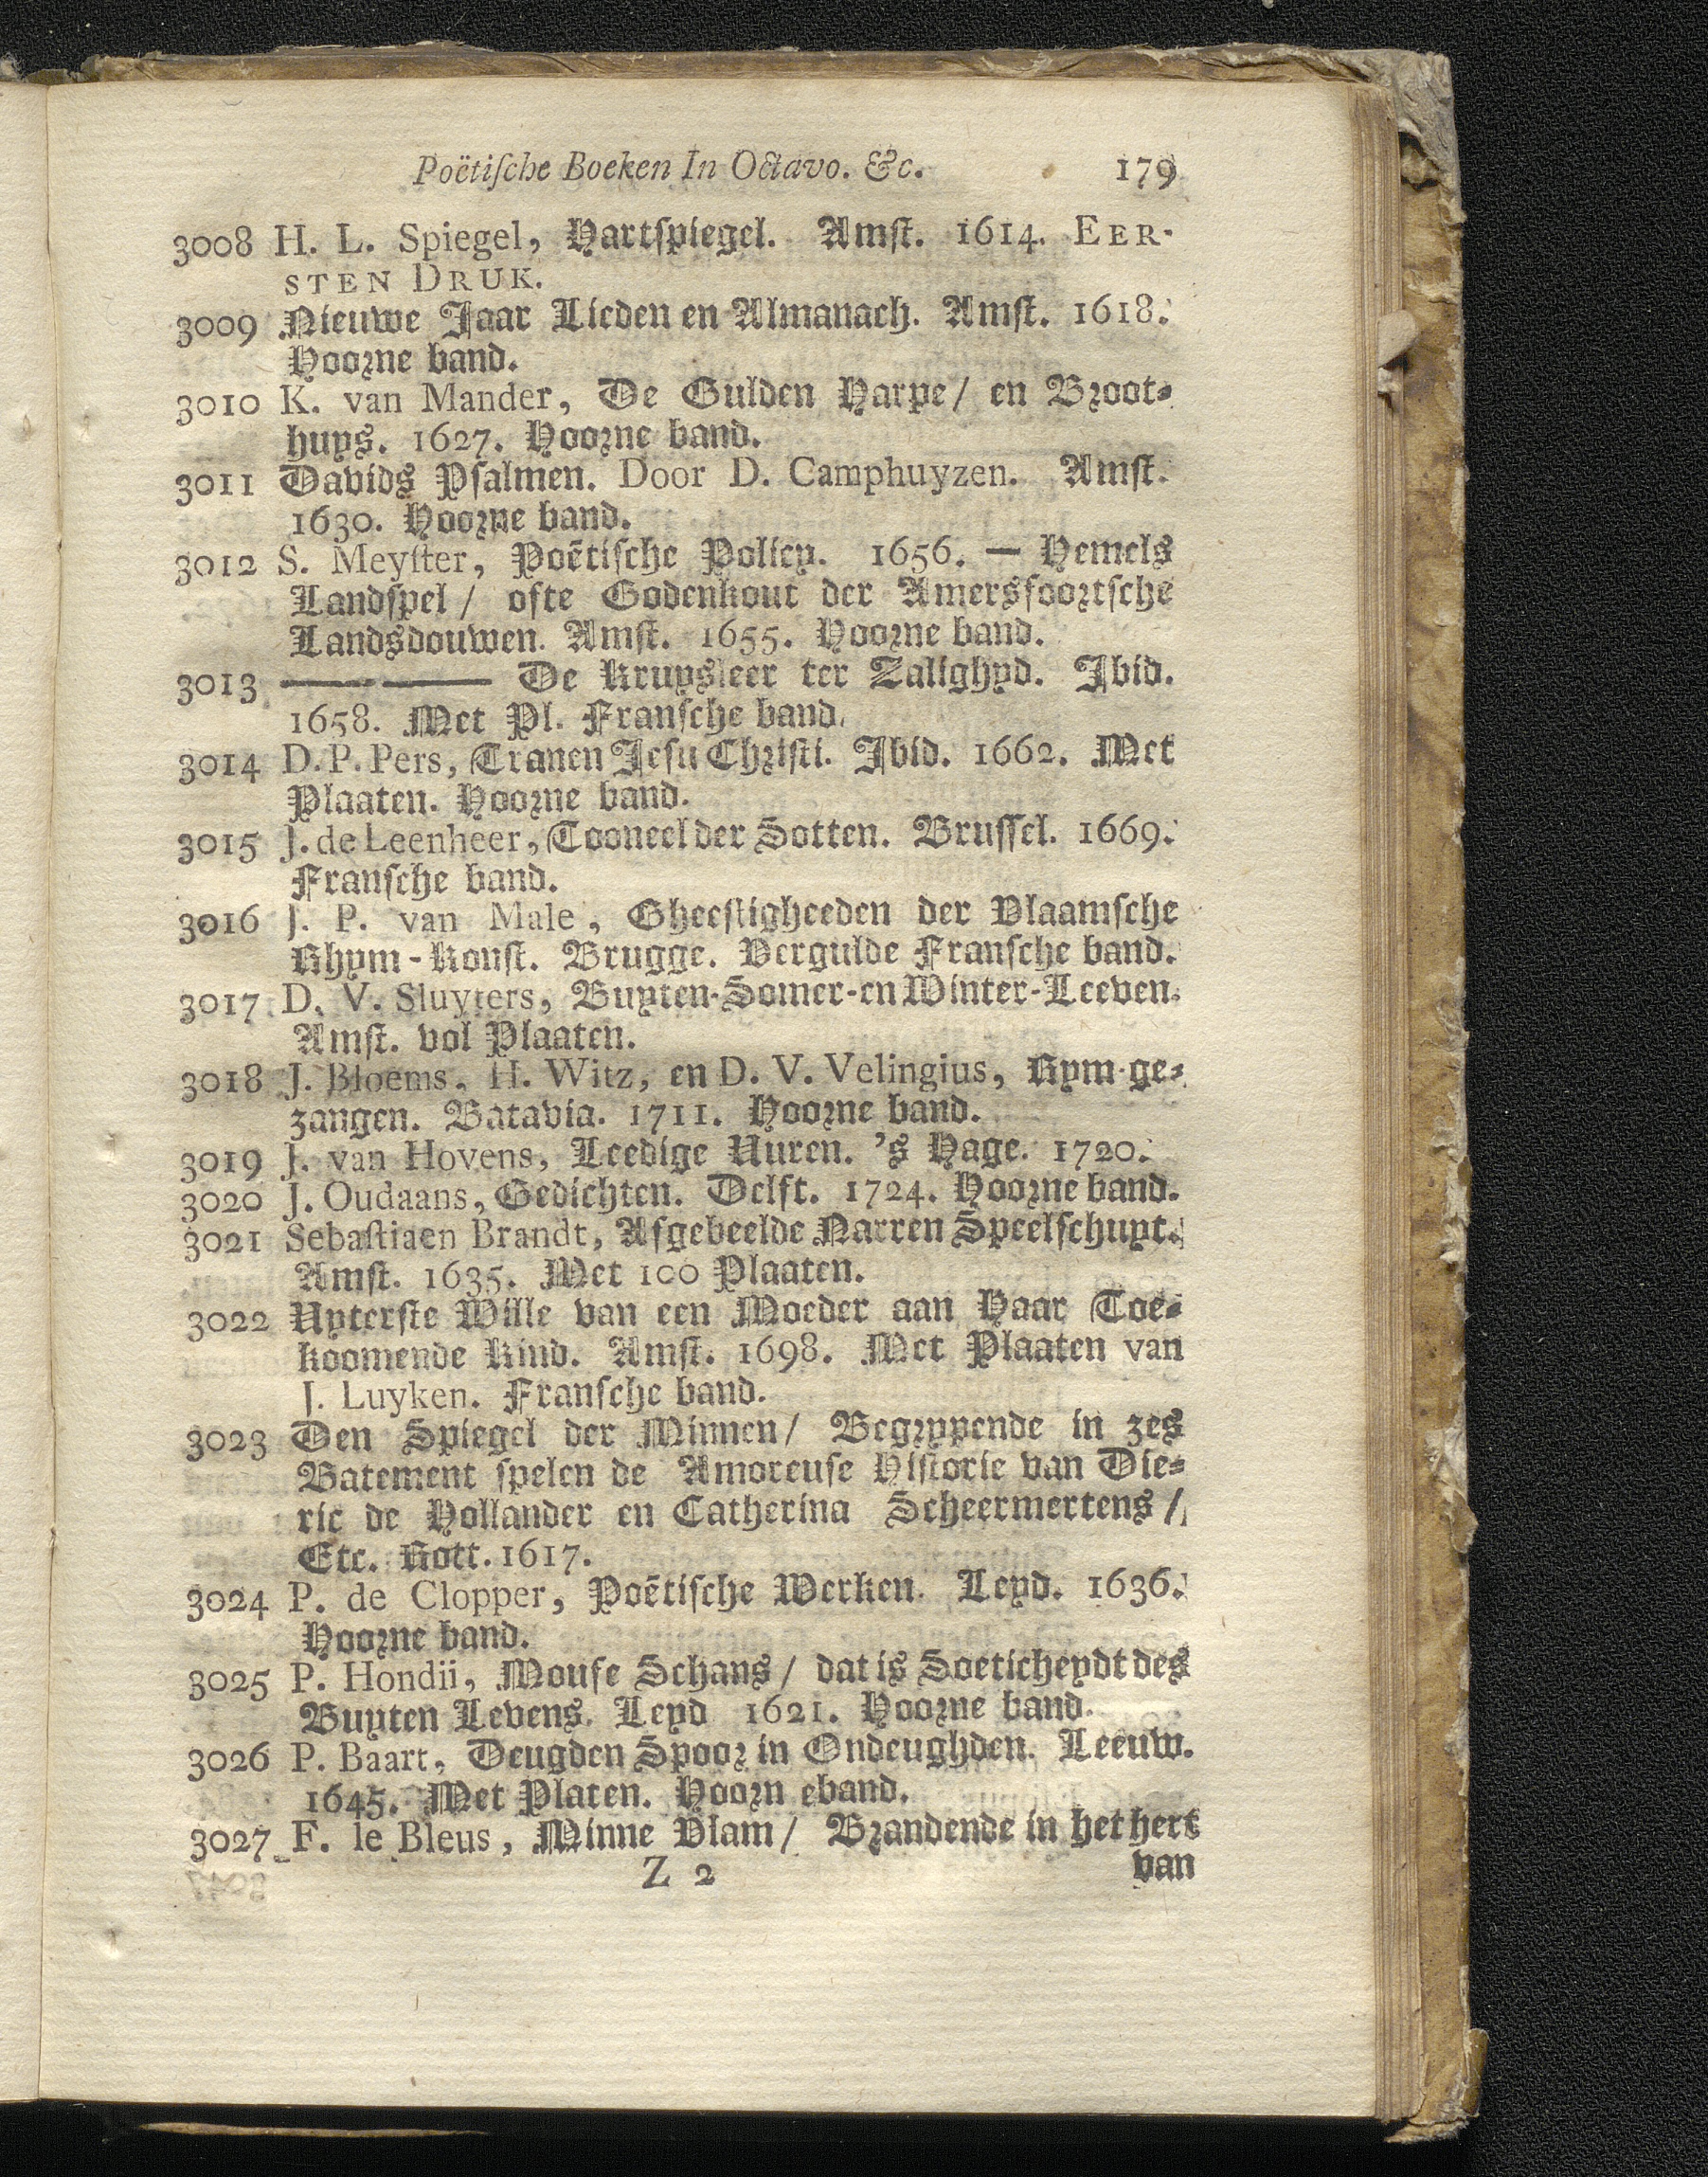 Poëtiſche Boeken In Octavo. &c. 179
3008 H. L. Spiegel, Hartſpiegel. Amſt. 1614. EER-
STEN DRUK.
3009 Nieuwe Jaar Lieden en Almanach. Amſt. 1618.
Hoorne band.
3010 K. van Mander, De Gulden Harpe/ en Broot-
huys. 1627. Hoorne band.
3011 Davids Pſalmen. Door D. Camphuyzen. Amſt.
1630. Hoorne band.
3012 S. Meyſter, Poëtiſche Policy. 1656. — Hemels
Landſpel/ ofte Godenkout der Amersfoortſche
Landsdouwen. Amſt. 1655. Hoorne band.
3013 —— —— De Kruysleer ter Zalighyd. Ibid.
1658. Met Pl. Franſche band.
3014 D. P. Pers, Tranen Jeſu Chriſti. Ibid. 1662. Met
Plaaten. Hoorne band.
3015 J. de Leenheer, Tooneel der Sotten. Bruſſel. 1669.
Franſche band.
3016 J. P. van Male, Gheeſtigheeden der Vlaamſche
Rhym-konſt. Brugge. Vergulde Franſche band.
3017 D. V. Sluyters, Buyten-Somer-en Winter-Leeven.
Amſt. vol Plaaten.
3018 J. Bloems, H. Witz, en D. V. Velingius, Rym-ge-
zangen. Batavia. 1711. Hoorne band.
3019 J. van Hovens, Leedige Uuren. 's Hage. 1720.
3020 J. Oudaans, Gedichten. Delft. 1724. Hoorne band.
3021 Sebaſtiaen Brandt, Afgebeelde Narren Speelſchuyt.
Amſt. 1635. Met 100 Plaaten.
3022 Uyterſte Wille van een Moeder aan Haar Toe-
koomende Kind. Amſt. 1698. Met Plaaten van
J. Luyken. Franſche band.
3023 Den Spiegel der Minnen/ Begrypende in zes
Batement ſpelen de Amoreuſe Hiſtorie van Die-
ric de Hollander en Catherina Scheermertens/
Etc. Rott. 1617.
3024 P. de Clopper, Poëtiſche Werken. Leyd. 1636.
Hoorne band.
3025 P. Hondii, Mouſe Schans/ dat is Soeticheydt des
Buyten Levens. Leyd 1621. Hoorne band.
3026 P. Baart, Deugden Spoor in Ondeughden. Leeuw.
1645. Met Platen. Hoorn eband.
3027 F. le Bleus, Minne Vlam/ Brandende in het hert
Z 2 van